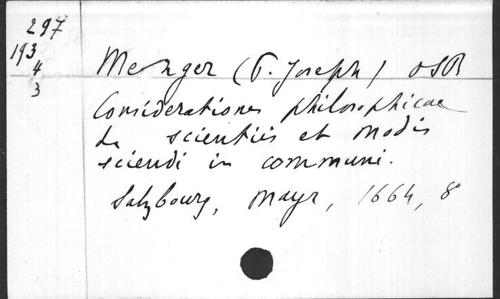 297
193
4
3
Menger (P. Joseph) OSB
Considerationes philosophicae
de scientiis et modis
sciendi in communi.
Salzbourg, Mayr, 1664, 8°